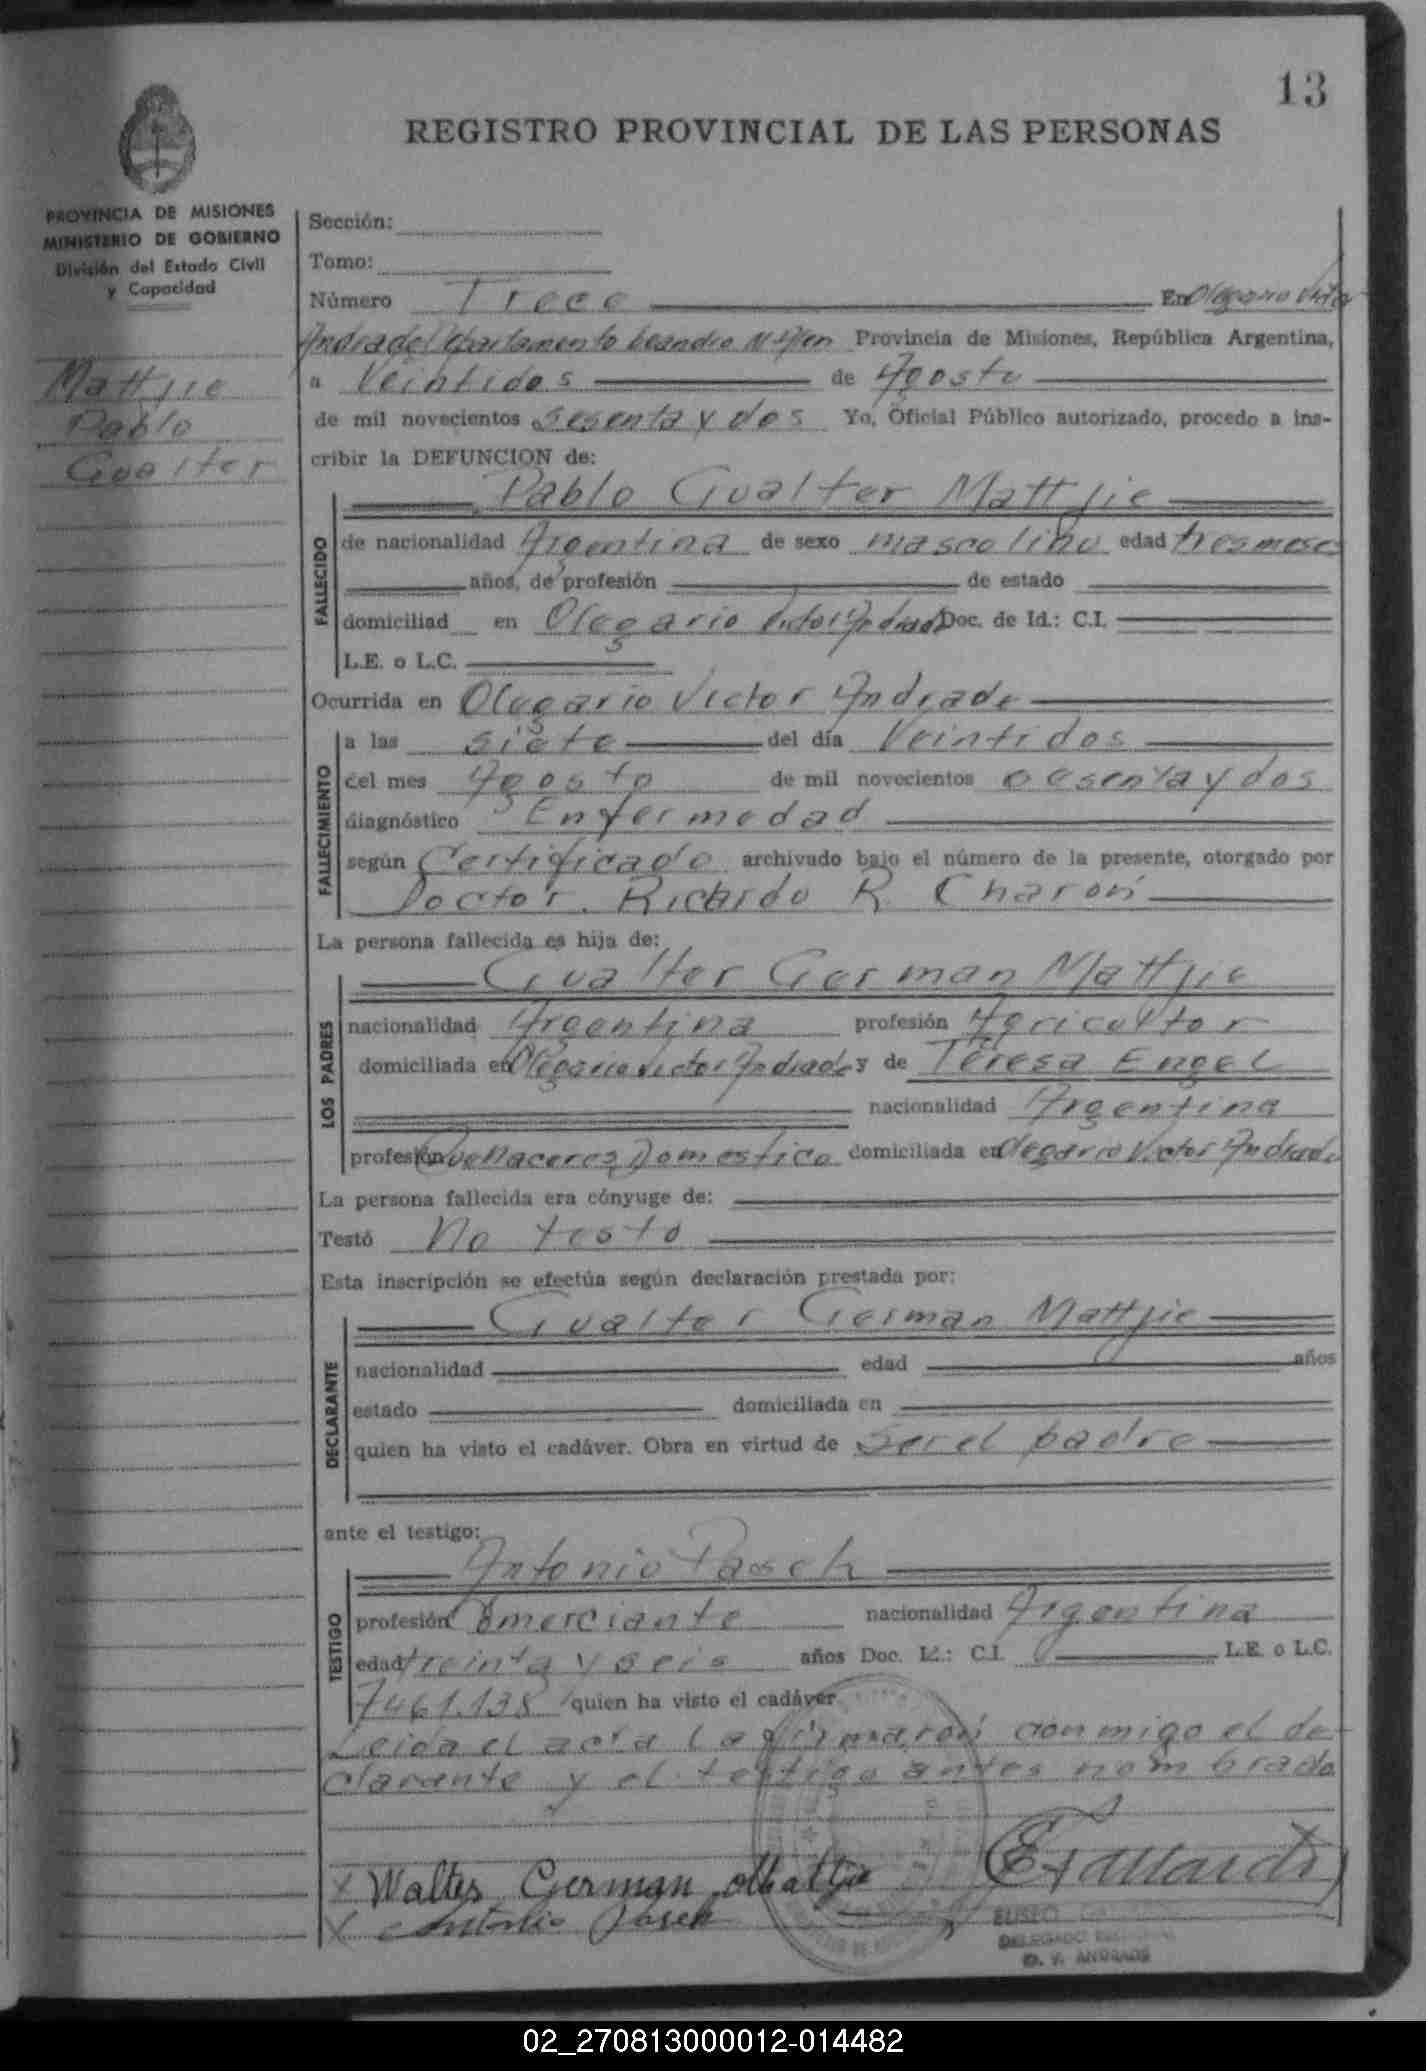 13
REGISTRO PROVINCIAL DE LAS PERSONAS
PROVINCIA DE MISIONES
MINISTERIO DE GOBIERNO
División del Estado Civil
y Capacidad
Mattjie
Pablo
Gualter
Sección:
Tomo:
Número Trece En Olegario Victor
Andrade Departamento Leandro N. Alem Provincia de Misiones, República Argentina,
a Veintidos de Agosto
de mil novecientos sesenta y dos Yo, Oficial Público autorizado, procedo a ins-
cribir la DEFUNCION de:
Pablo Gualter Mattjie
FALLECIDO
de nacionalidad Argentina de sexo mascolino edad tres meses
años, de profesión de estado
domiciliad en Olegario Victor Andrade Doc. de Id.: C.I.
L.E. o L.C.
Ocurrida en Olegario Victor Andrade
FALLECIMIENTO
a las siete del día Veintidos
del mes Agosto de mil novecientos sesenta y dos
diagnóstico Enfermedad
según Certificado archivado bajo el número de la presente, otorgado por
Doctor. Ricardo R. Charon
La persona fallecida es hija de:
LOS PADRES
Gualter German Mattjie
nacionalidad Argentina profesión Agricultor
domiciliada en Olegario Victor Andrade y de Teresa Engel
nacionalidad Argentina
profesión Quehaceres Domestico domiciliada en Olegario Victor Andrade
La persona fallecida era cónyuge de:
Testó No testo
Esta inscripción se efectúa según declaración prestada por:
DECLARANTE
Gualter German Mattjie
nacionalidad edad años
estado domiciliada en
quien ha visto el cadáver. Obra en virtud de Ser el padre
ante el testigo:
TESTIGO
Antonio Pasch
profesión Comerciante nacionalidad Argentina
edad treinta y seis años Doc. Id.: C.I. L.E. o L.C.
7461.138 quien ha visto el cadáver
Leida el acta la firmaron conmigo el de-
clarante y el testigo antes nombrado
X Walter German Mattjie
X Antonio Pasch
ELISEO
DELEGADO
O. V. ANDRADE
02_270813000012-014482